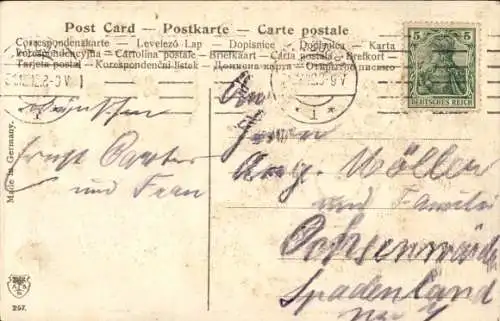 Post Card – Postkarte – Carte postale
Correspondenzkarte – Levelező Lap – Dopisnice – Dopisnica – Karta
korespondencyjna – Cartolina postale – Briefkaart – Carta postale – Brefkort
Tarjeta postal – Korespondenční listek – Дописна карта – Открытое письмо
5 5
DEUTSCHES REICH
An
Herrn
Aug. Möller
und Familie
Ochsenwärder
Spadenland
No
wünschen
Ernst
und Frau
Made in Germany.
257.